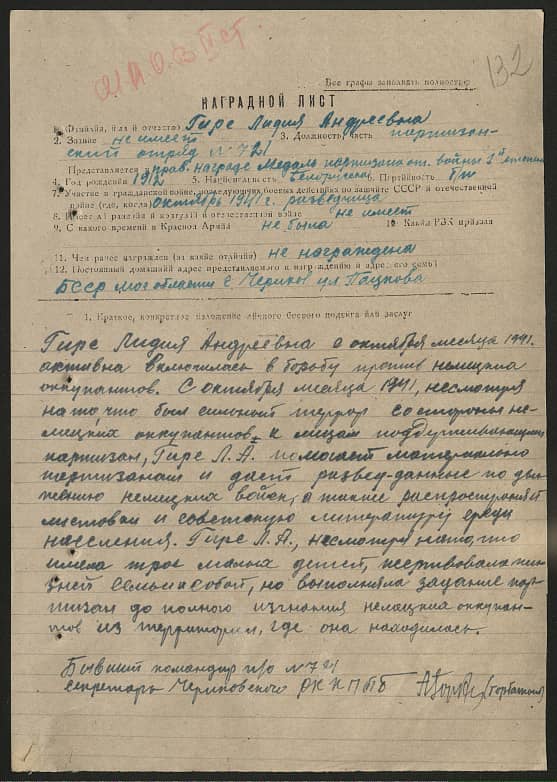 М.П.О.В. II ст
132
Все графы заполнять полностью
НАГРАДНОЙ ЛИСТ
1. Фамилия, имя и отчество Гирс Лидия Андреевна
2. Звание не имеет 3. Должность, часть партизан-
ский отряд № 721
Представляется к прав. награде Медаль партизана от. войны
4. Год рождения 1912 5. Национальность Белоруска 6. Партийность б/п
7. Участие в гражданской войне, последующих боевых действиях по защите СССР и отечественной
войне (где, когда) октябрь 1941 г. разведчица
8. Имеет ли ранения и контузии в отечественной войне не имеет
9. С какого времени в Красной Армии не была 10. Каким РВК призван
11. Чем ранее награжден (за какие отличия) не награждена
12. Постоянный домашний адрес представляемого к награждению и адрес его семьи
БССР Мог области г. Чериков ул
1. Краткое, конкретное изложение личного боевого подвига или заслуг
Гирс Лидия Андреевна с октября месяца 1941.
активна включилась в борьбу против немецких
оккупантов. С октября месяца 1941, несмотря
на то, что был сильный террор со стороны не-
мецких оккупантов к лицам поддерживающим
партизан, Гирс Л. А. помогает материально
партизанам и дает развед-данные по дви-
жению немецких войск, а также распространяет
листовки и советскую литературу среди
населения. Гирс Л. А., несмотря на то, что
имела трое малых детей, жертвовала жиз-
ней семьи и собой, но выполняла задание пар-
тизан до полного изгнания немецких оккупан-
тов из территории, где она находилась.
Бывший командир п/о № 721
секретарь Чериковского РК КП/б/Б (Горбатый)